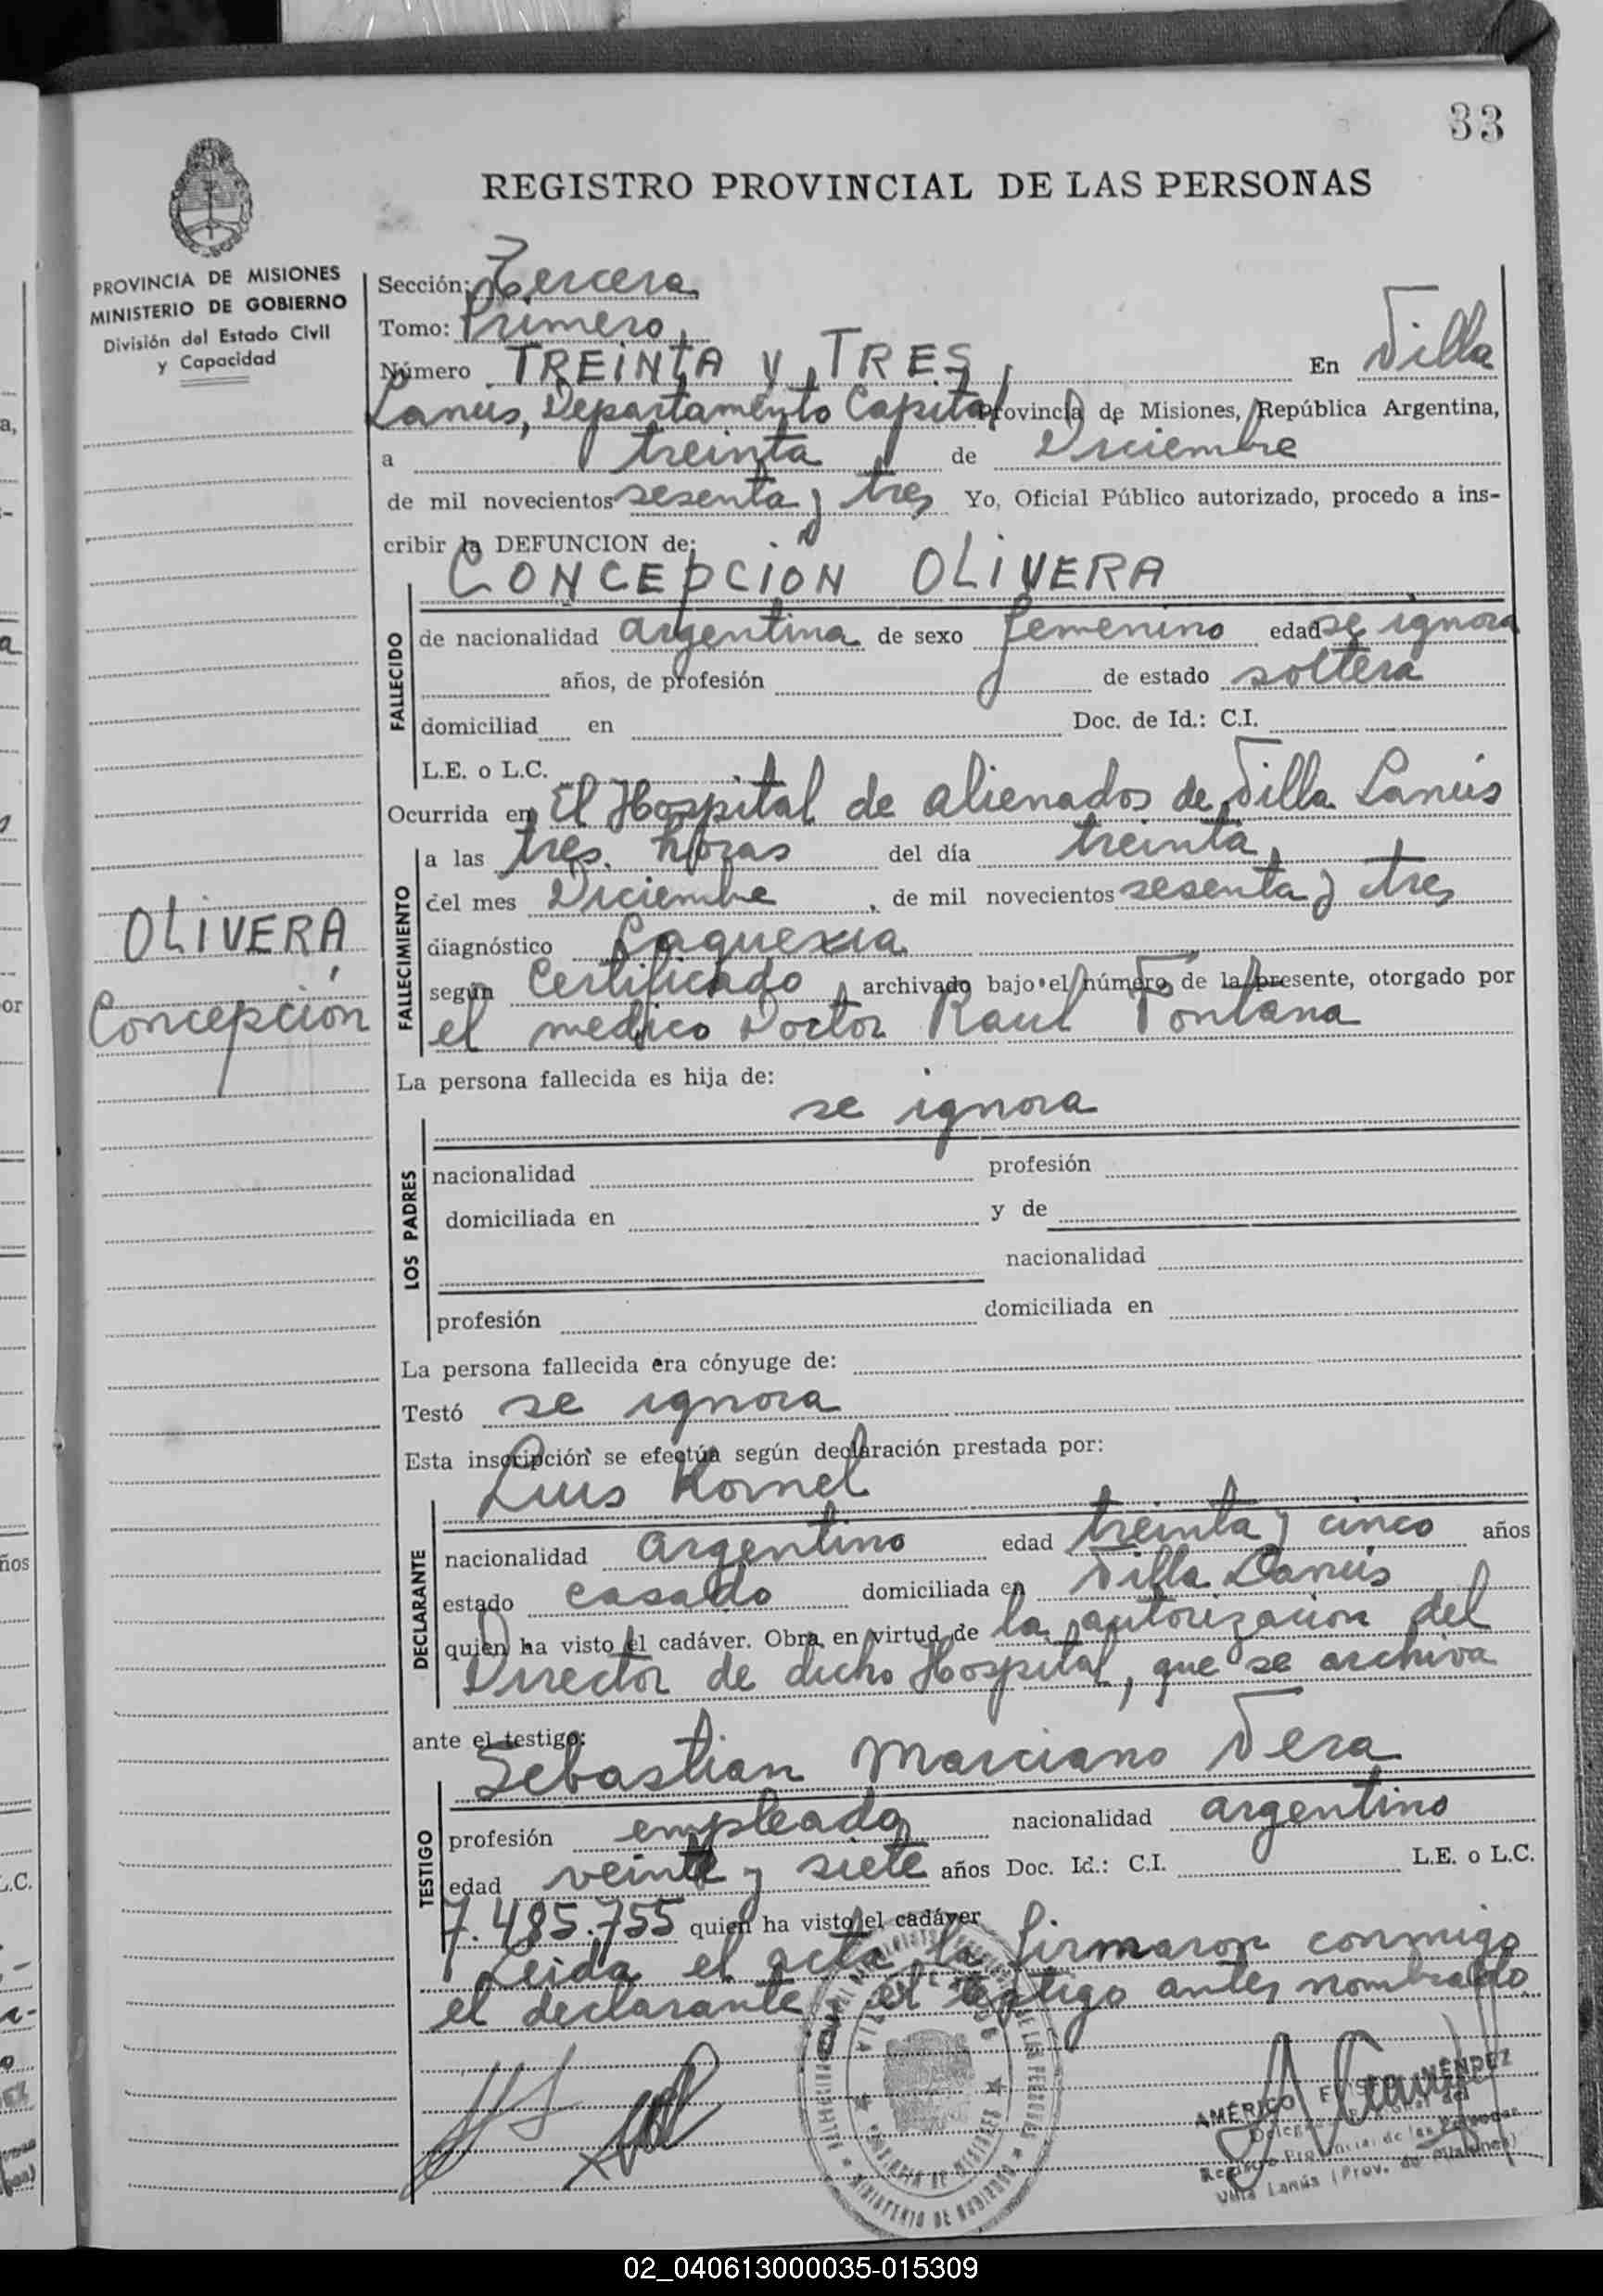 33
REGISTRO PROVINCIAL DE LAS PERSONAS
PROVINCIA DE MISIONES
MINISTERIO DE GOBIERNO
División del Estado Civil
y Capacidad
Sección: Tercera
Tomo: Primero
Número TREINTA Y TRES, En Villa
Lanús, Departamento Capital Provincia de Misiones, República Argentina,
a treinta de Diciembre
de mil novecientos sesenta y tres Yo, Oficial Público autorizado, procedo a ins-
cribir la DEFUNCION de:
CONCEPCION OLIVERA
FALLECIDO
de nacionalidad argentina de sexo femenino edad se ignora
años, de profesión de estado soltera
domiciliad en Doc. de Id.: C.I.
L.E. o L.C.
Ocurrida en El Hospital de alienados de Villa Lanús
FALLECIMIENTO
a las tres horas del día treinta
del mes Diciembre, de mil novecientos sesenta y tres
diagnóstico Caquexia
según Certificado archivado bajo el número de la presente, otorgado por
el medico Doctor Raul Fontana
OLIVERA,
Concepción
La persona fallecida es hija de:
se ignora
LOS PADRES
nacionalidad profesión
domiciliada en y de
nacionalidad
profesión domiciliada en
La persona fallecida era cónyuge de:
Testó se ignora
Esta inscripción se efectúa según declaración prestada por:
Luis Kornel
DECLARANTE
nacionalidad argentino edad treinta y cinco años
estado casado domiciliada en Villa Lanús
quien ha visto el cadáver. Obra en virtud de la autorizacion del
Director de dicho Hospital, que se archiva
ante el testigo:
Sebastian Marciano Vera
TESTIGO
profesión empleado nacionalidad argentino
edad veinte y siete años Doc. Id.: C.I. L.E. o L.C.
7.485.755 quien ha visto el cadáver
Leida el acta la firmaron conmigo
el declarante y el testigo antes nombrado
AMÉRICO MÉNDEZ
Registro Provincial de las Personas
Villa Lanús (Prov. de Misiones)
PROVINCIA DE MISIONES
MINISTERIO DE GOBIERNO
02_040613000035-015309